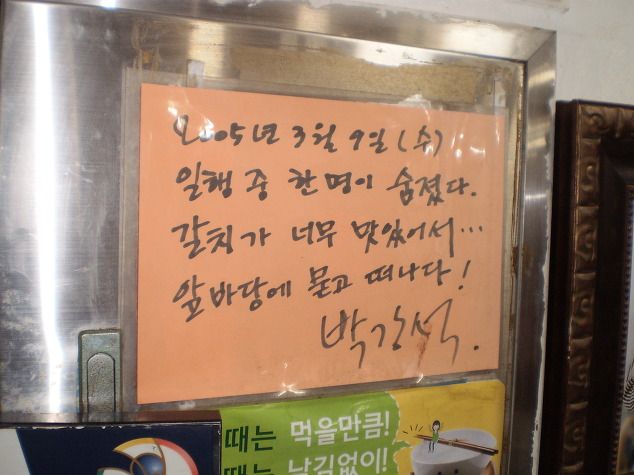 2005년 3월 9일 (수)
일행 중 한 명이 숨졌다.
갈치가 너무 맛있어서...
앞바당에 묻고 떠나다!
박강석.
때는 먹을만큼!
때는 남김없이!